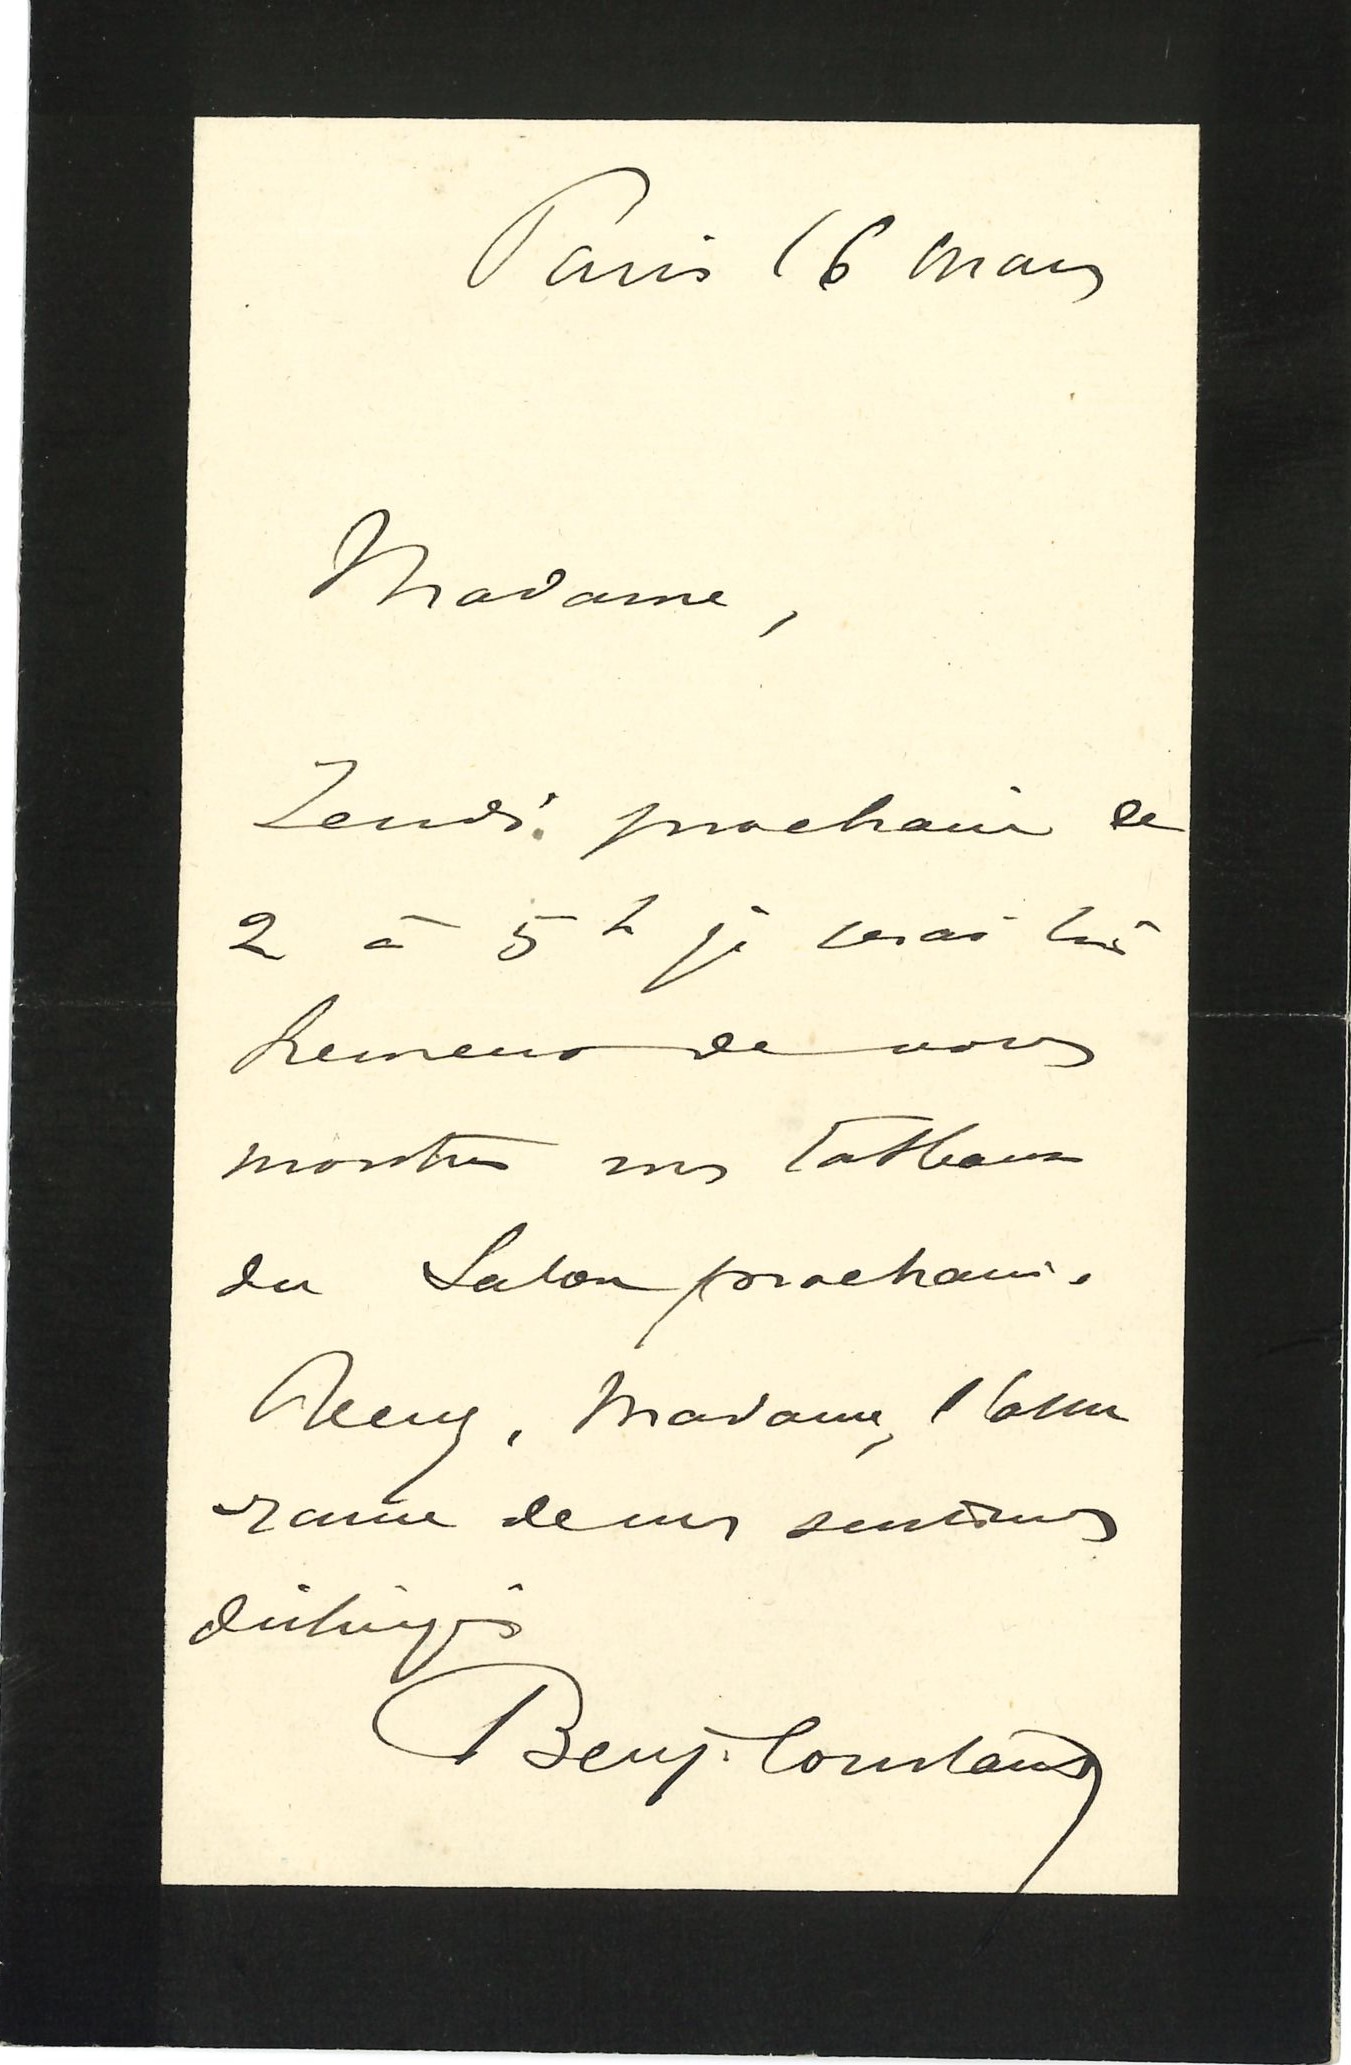 Paris 16 Mars
Madame,
Jeudi prochain de
2 à 5h je serai très
heureux de vous
montrer mes tableaux
du Salon prochain.
Recevez, Madame, l'assu
rance de mes sentiments
distingués
Benj. Constant